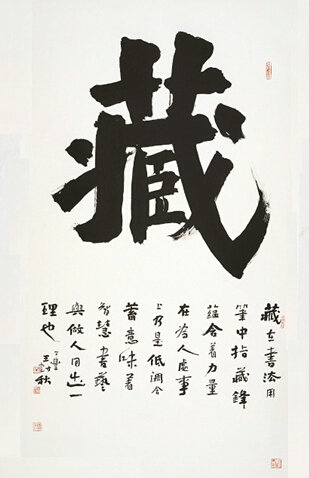 藏
藏在書法用
筆中指藏鋒
蕴含着力量
在為人處事
上乃是低調含
蓄意味着
智慧書藝
與做人同出一
理也